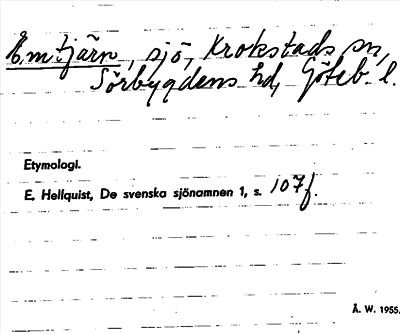 Emtjärn, sjö, Krokstads sn,
Sörbygdens hd, Göteb. l.
Etymologi.
E. Hellquist, De svenska sjönamnen 1, s. 107f.
Å. W. 1955.